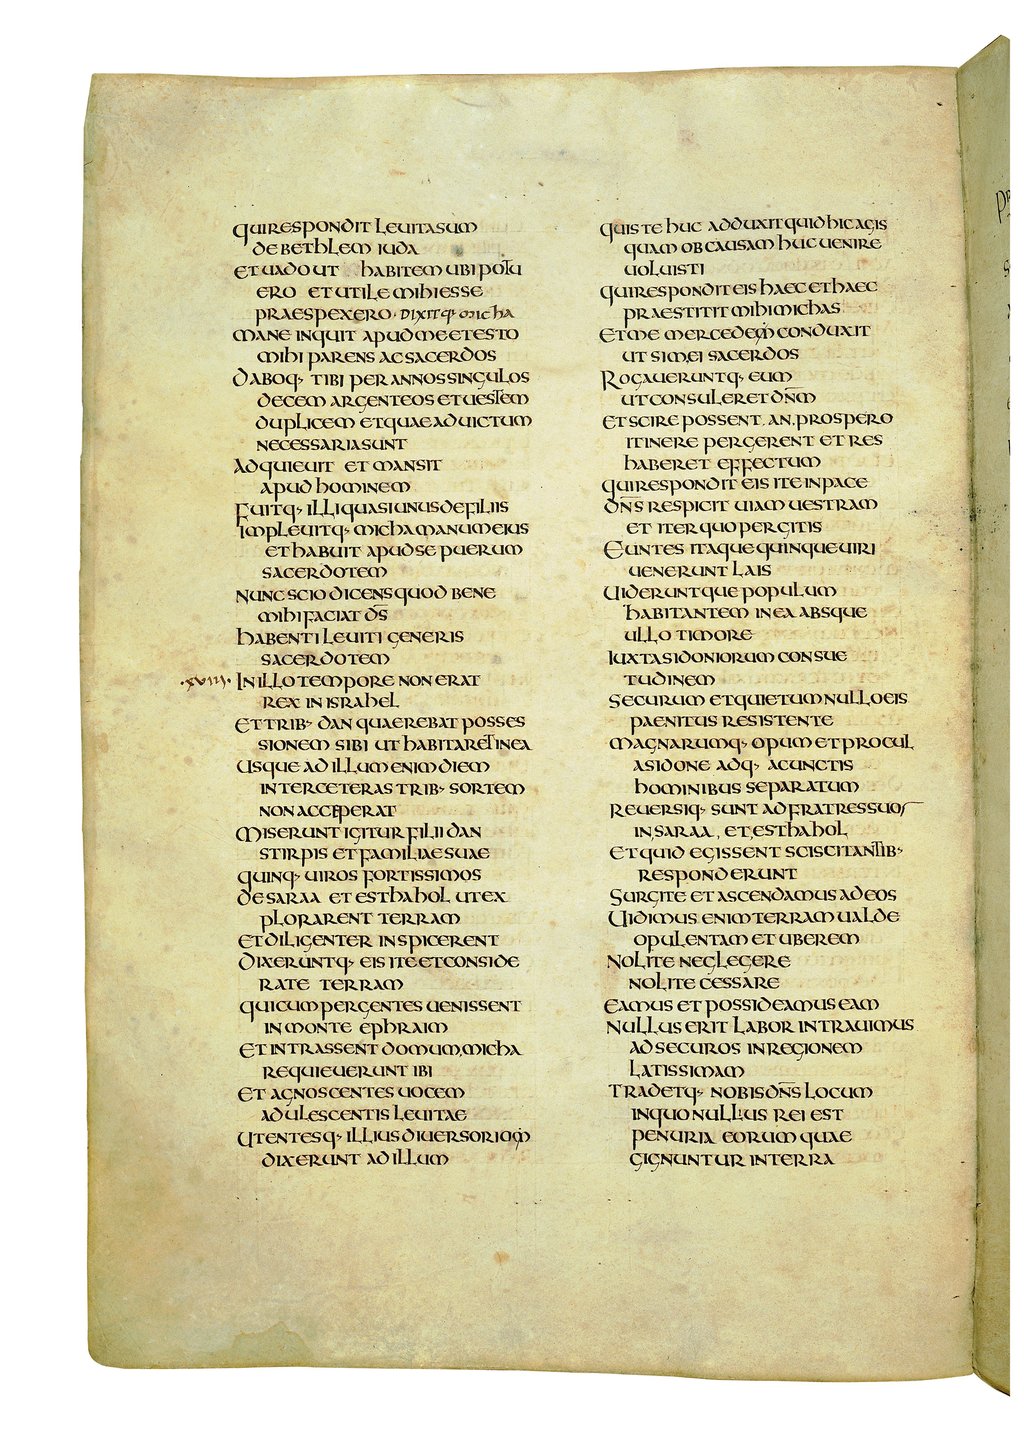 QUI RESPONDIT LEUITA SUM
DE BETHLEM IUDA
ET UADO UT HABITEM UBI POTU
ERO ET UTILE MIHI ESSE
PRAESPEXERO · DIXITQ· MICHA
MANE INQUIT APUD ME ET ESTO
MIHI PARENS AC SACERDOS
DABOQ· TIBI PER ANNOS SINGULOS
DECEM ARGENTEOS ET UESTEM
DUPLICEM ET QUAE AD UICTUM
NECESSARIA SUNT
ADQUIEUIT ET MANSIT
APUD HOMINEM
FUITQ· ILLI QUASI UNUS DE FILIIS
IMPLEUITQ· MICHA MANUM EIUS
ET HABUIT APUD SE PUERUM
SACERDOTEM
NUNC SCIO DICENS QUOD BENE
MIHI FACIAT D̄S̄
HABENTI LEUITI GENERIS
SACERDOTEM
·XVIII· IN ILLO TEMPORE NON ERAT
REX IN ISRAHEL
ET TRIB· DAN QUAEREBAT POSSES
SIONEM SIBI UT HABITARET IN EA
USQUE AD ILLUM ENIM DIEM
INTER CETERAS TRIB· SORTEM
NON ACCEPERAT
MISERUNT IGITUR FILII DAN
STIRPIS ET FAMILIAE SUAE
QUINQ· UIROS FORTISSIMOS
DE SARAA ET ESTHAHOL UT EX
PLORARENT TERRAM
ET DILIGENTER INSPICERENT
DIXERUNTQ· EIS ITE ET CONSIDE
RATE TERRAM
QUI CUM PERGENTES UENISSENT
IN MONTE EPHRAIM
ET INTRASSENT DOMUM MICHA
REQUIEUERUNT IBI
ET AGNOSCENTES UOCEM
ADULESCENTIS LEUITAE
UTENTESQ· ILLIUS DIUERSORIO
DIXERUNT AD ILLUM
QUIS TE HUC ADDUXIT QUID HIC AGIS
QUAM OB CAUSAM HUC UENIRE
UOLUISTI
QUI RESPONDIT EIS HAEC ET HAEC
PRAESTITIT MIHI MICHAS
ET ME MERCEDE CONDUXIT
UT SIM EI SACERDOS
ROGAUERUNTQ· EUM
UT CONSULERET D̄N̄M̄
ET SCIRE POSSENT · AN · PROSPERO
ITINERE PERGERENT ET RES
HABERET EFFECTUM
QUI RESPONDIT EIS ITE IN PACE
D̄N̄S̄ RESPICIT UIAM UESTRAM
ET ITER QUO PERGITIS
EUNTES ITAQUE QUINQUE UIRI
UENERUNT LAIS
UIDERUNTQUE POPULUM
HABITANTEM IN EA ABSQUE
ULLO TIMORE
IUXTA SIDONIORUM CONSUE
TUDINEM
SECURUM ET QUIETUM NULLO EIS
PAENITUS RESISTENTE
MAGNARUMQ· OPUM ET PROCUL
A SIDONE ADQ· A CUNCTIS
HOMINIBUS SEPARATUM
REUERSIQ· SUNT AD FRATRES SUOS
IN SARAA, ET, ESTHAHOL
ET QUID EGISSENT SCISCITANTIB·
RESPONDERUNT
SURGITE ET ASCENDAMUS AD EOS
UIDIMUS ENIM TERRAM UALDE
OPULENTAM ET UBEREM
NOLITE NEGLEGERE
NOLITE CESSARE
EAMUS ET POSSIDEAMUS EAM
NULLUS ERIT LABOR INTRAUIMUS
AD SECUROS IN REGIONEM
LATISSIMAM
TRADETQ· NOBIS D̄N̄S̄ LOCUM
IN QUO NULLIUS REI EST
PENURIA EORUM QUAE
GIGNUNTUR IN TERRA